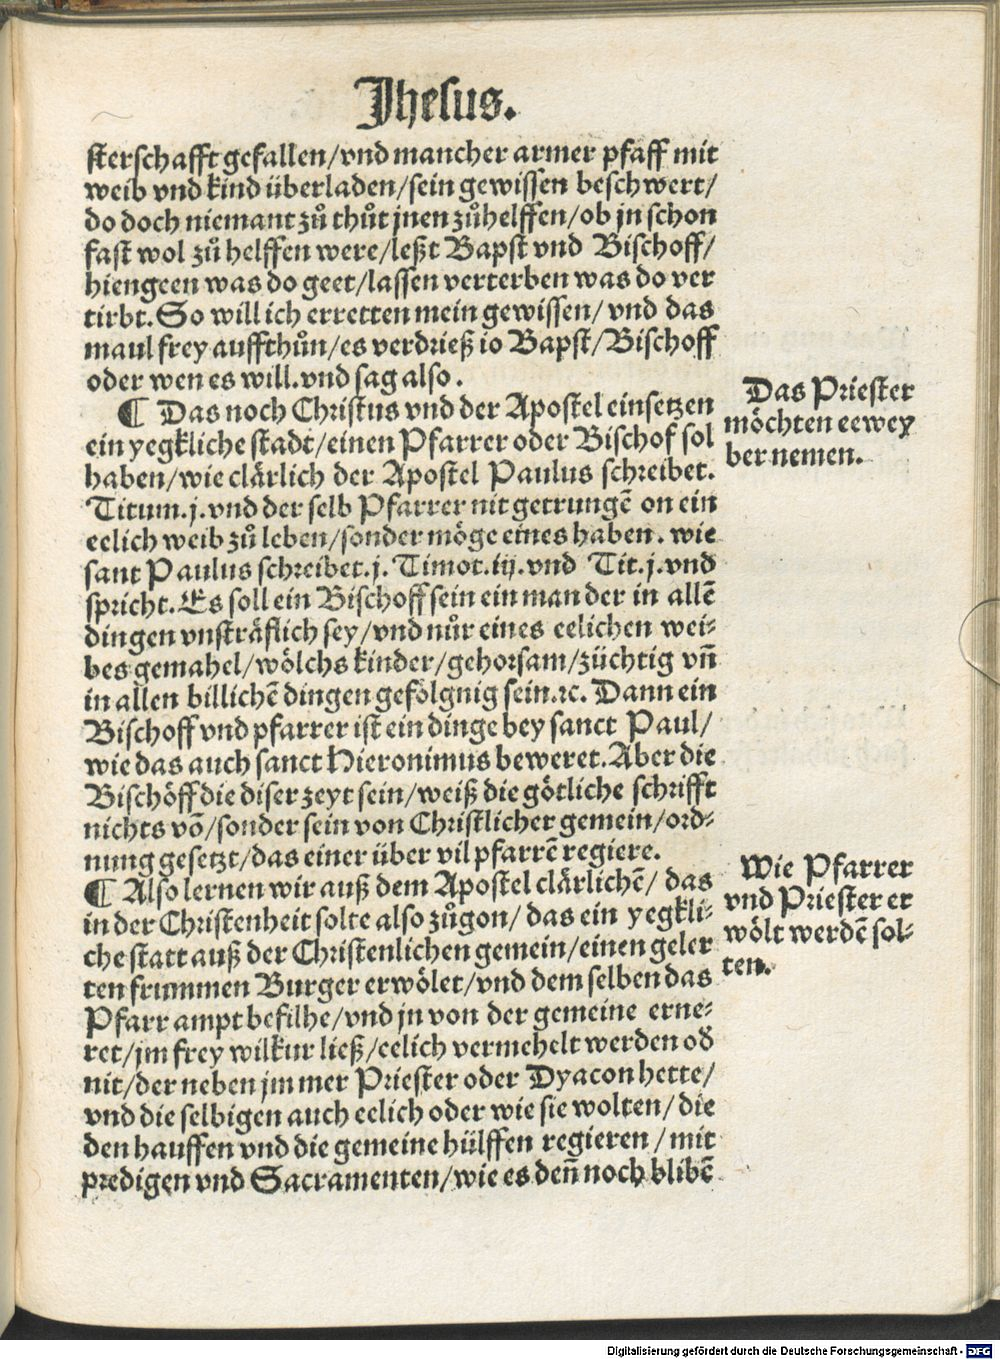 Jhesus.
sterschafft gefallen/vnd mancher armer pfaff mit
weib vnd kind überladen/sein gewissen beschwert/
do doch niemant zů thůt jnen zůhelffen/ob jn schon
fast wol zů helffen were/leßt Bapst vnd Bischoff/
hiengeen was do geet/lassen verterben was do ver
tirbt. So will ich erretten mein gewissen/vnd das
maul frey auffthůn/es verdrieß io Bapst/Bischoff
oder wen es will.vnd sag also.
¶ Das noch Christus vnd der Apostel einsetzen
ein yegkliche stadt/einen Pfarrer oder Bischof sol
haben/wie clärlich der Apostel Paulus schreibet.
Titum.j.vnd der selb Pfarrer nit getrungē on ein
eelich weib zů leben/sonder möge eines haben. wie
sant Paulus schreibet.j. Timot.iij.vnd Tit.j.vnd
spricht. Es soll ein Bischoff sein ein man der in allē
dingen vnsträflich sey/vnd nůr eines eelichen wei⸗
bes gemahel/wölchs kinder/gehorsam/züchtig vñ
in allen billichē dingen gefölgnig sein.⁊c. Dann ein
Bischoff vnd pfarrer ist ein dinge bey sanct Paul/
wie das auch sanct Hieronimus beweret. Aber die
Bischöff die diser zeyt sein/weiß die götliche schrifft
nichts vō/sonder sein von Christlicher gemein/ord⸗
nung gesetzt/das einer über vil pfarrē regiere.
¶ Also lernen wir auß dem Apostel clärlichē/ das
in der Christenheit solte also zůgon/ das ein yegkli⸗
che statt auß der Christenlichen gemein/einen geler
ten frummen Burger erwölet/vnd dem selben das
Pfarr ampt befilhe/vnd jn von der gemeine erne⸗
ret/jm frey wilkur ließ/eelich vermehelt werden od̕
nit/der neben jm mer Priester oder Dyacon hette/
vnd die selbigen auch eelich oder wie sie wolten/ die
den hauffen vnd die gemeine hülffen regieren/mit
predigen vnd Sacramenten/wie es deñ noch blibē
Das Priester
möchten eewey
ber nemen.
Wie Pfarrer
vnd Priester er
wölt werdē sol⸗
ten.
Digitalisierung gefördert durch die Deutsche Forschungsgemeinschaft - DFG